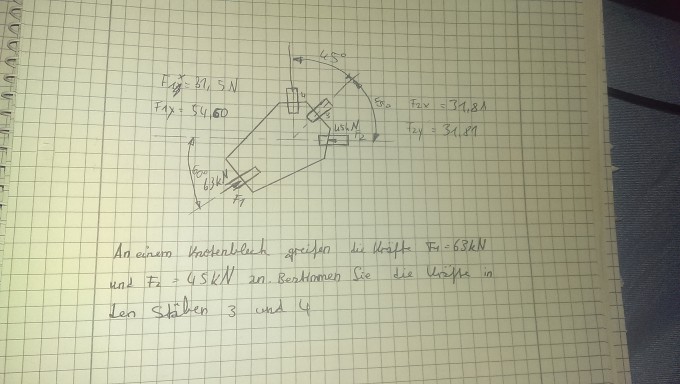 45°
F1y = 31,5 N
F1x = 54,60
4
3
F2x = 31,81
F2y = 31,81
45kN
F2
63kN
F1
An einem Knotenblech greifen die Kräfte F1 = 63kN
und F2 = 45kN an. Bestimmen Sie die Kräfte in
den Stäben 3 und 4